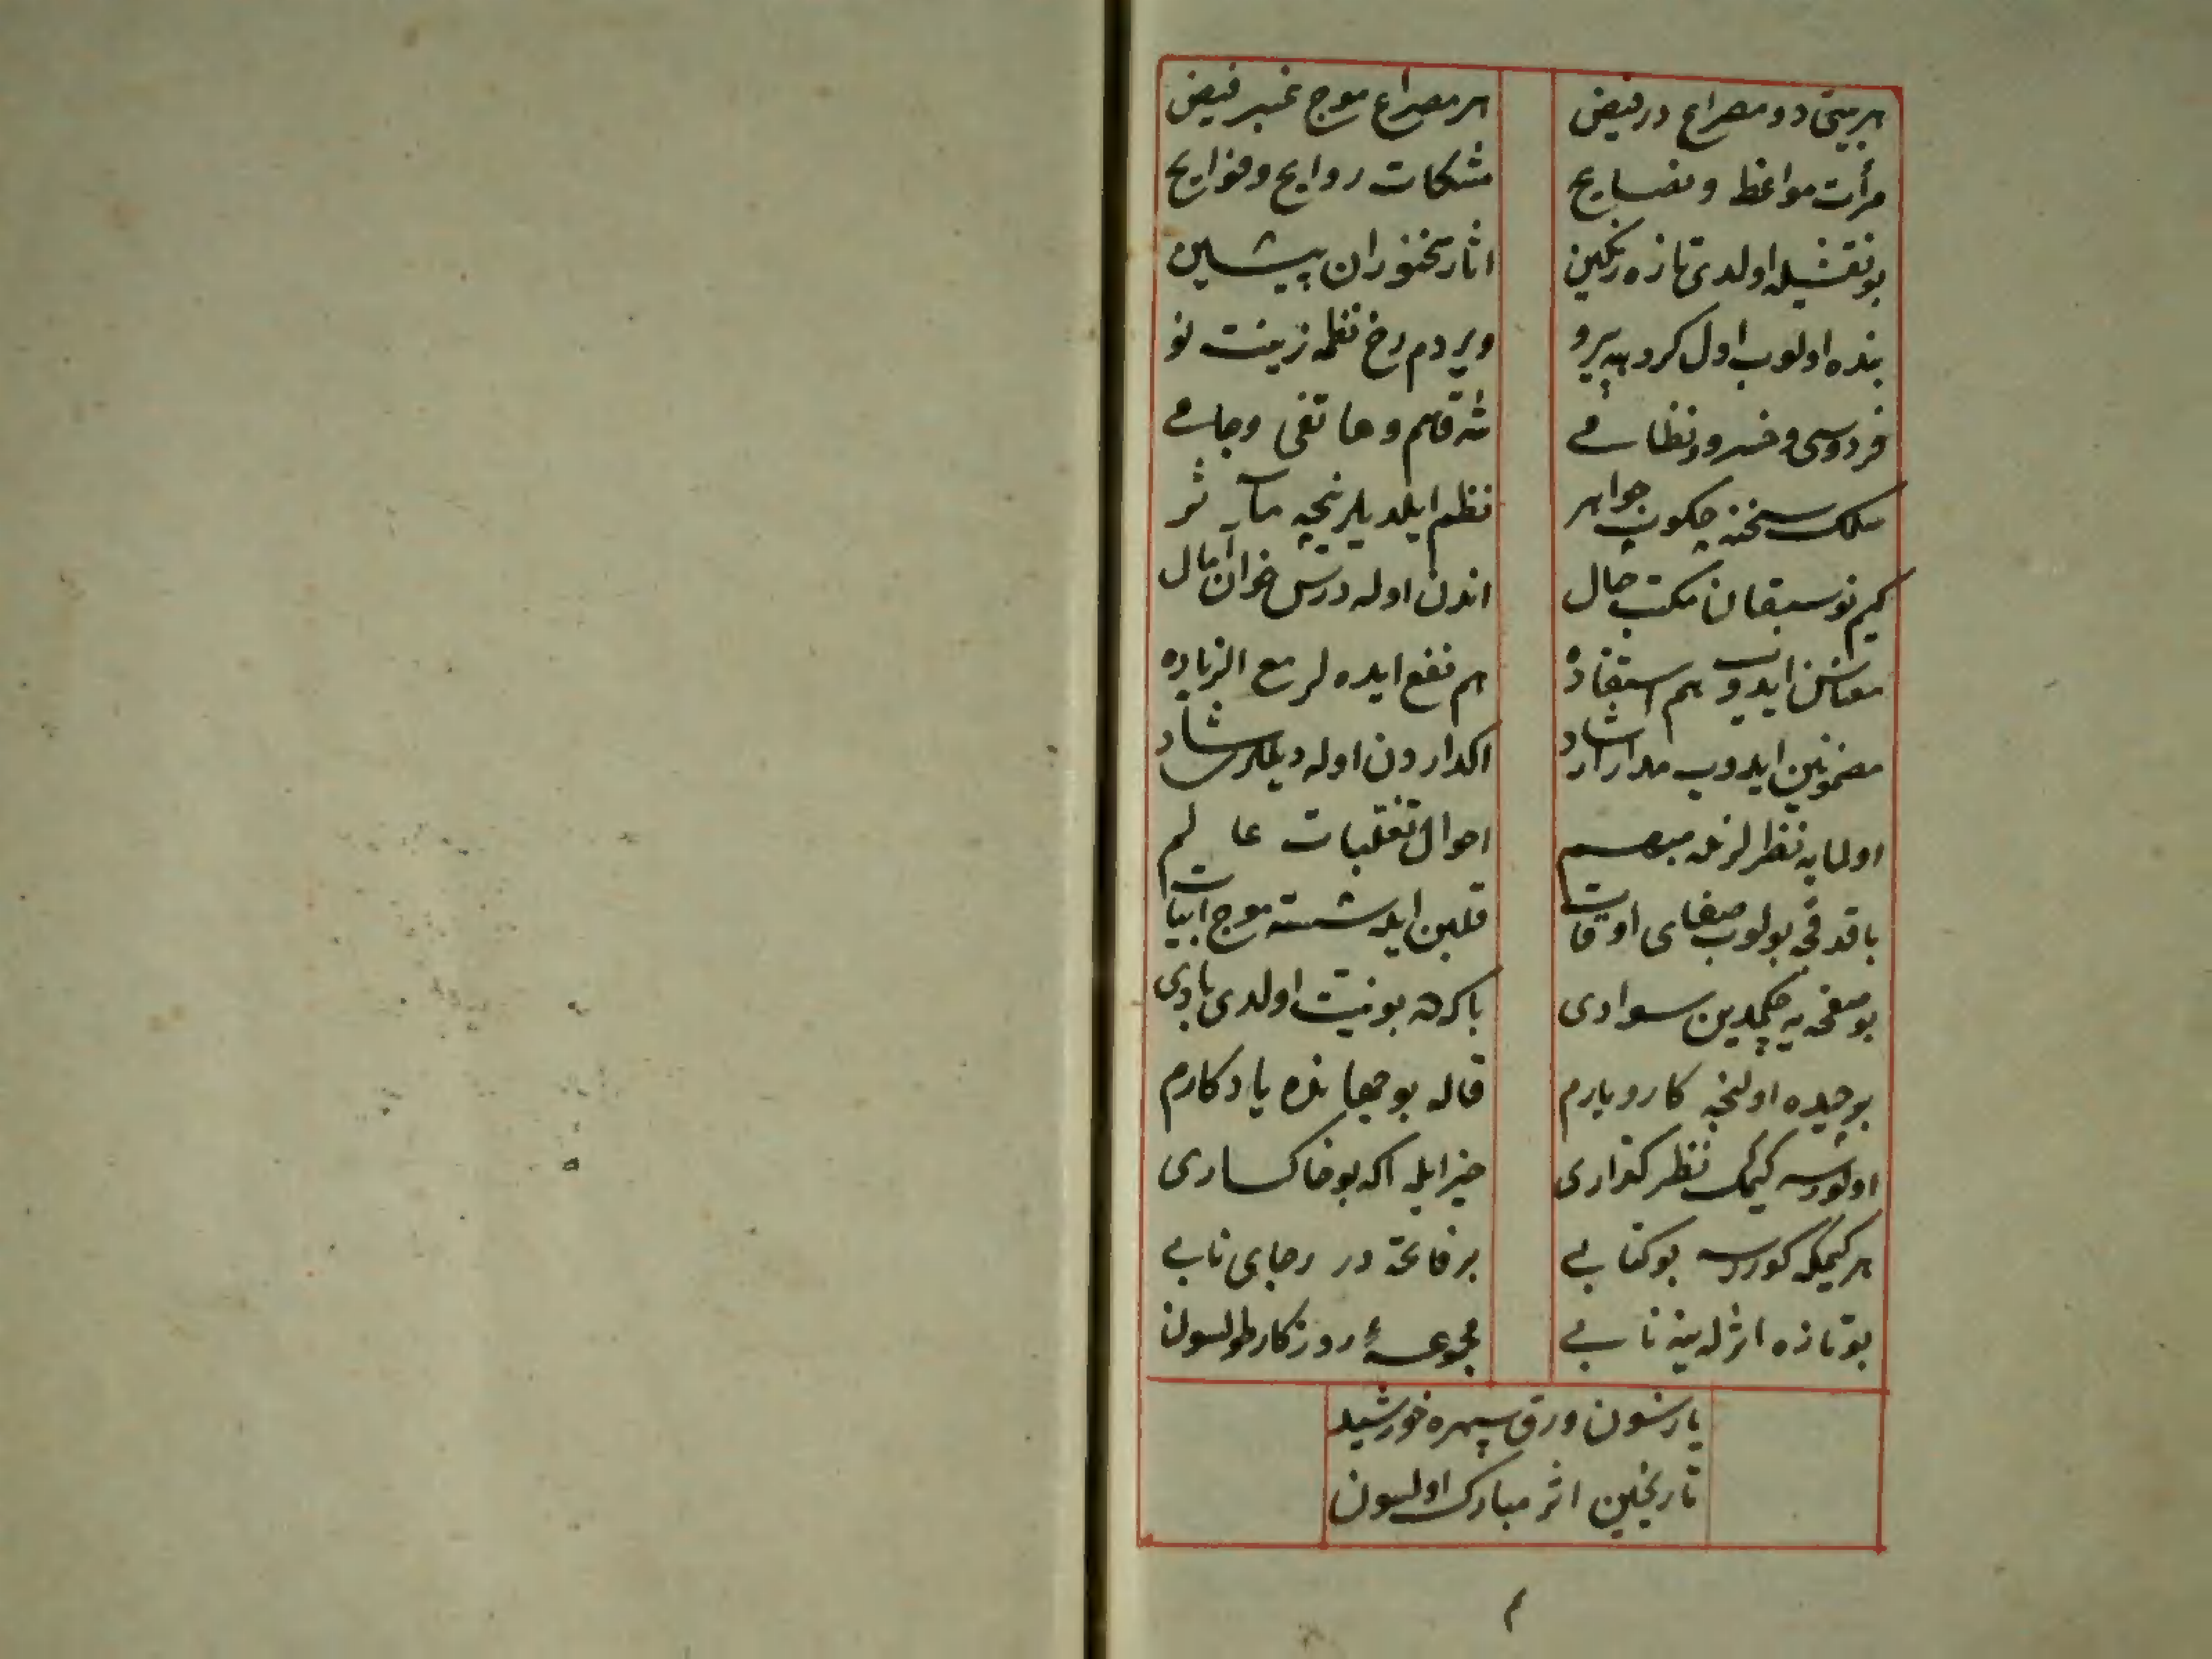 هر بیتی دو مصراع در فیض
هر مصراع موج عنبر فیض
مرأت مواعظ و نصایح
مشكات روایح و فوایح
بو نقشیله اولدی تازه رنكین
اثار سخنوران پیشین
بنده اولوب اول كروهه پیرو
ویردم رخ نظمه زینت نو
فردوسی و خسرو و نظامی
شه قاسم و هاتفی و جامی
سلك سخنه چكوب جواهر
نظم ایلدیلر نیجه مآثر
كیم نو سبقان مكتب حال
اندن اوله درس خوان آمال
معناسن ایدوب هم استفاده
هم نفع ایده لر مع الزیاده
مضمونین ایدوب مدار ارشاد
اكداردن اوله دیلر شاد
اولمایه نظرلرنده مبهم
احوال تقلبات عالم
باقدقجه بولوب صفای اوقات
قلبن ایله شسته موج ابیات
بو صفحه یه چكمدین سوادی
باكه ده بو نیت اولدی بادی
برچیده اولنجه كاروبارم
قاله بو جهانده یادكارم
اولورسه كیمك نظر كذاری
خیر ایله اكه بو خاكساری
هر كیمكه كورسه بو كتابی
بر فاتحه در رجای نابی
بو تازه اثرله ینه نابی
مجموعۀ روزكار طولسون
یازسون ورق سپهره خورشید
تاریخین اثر مبارك اولسون